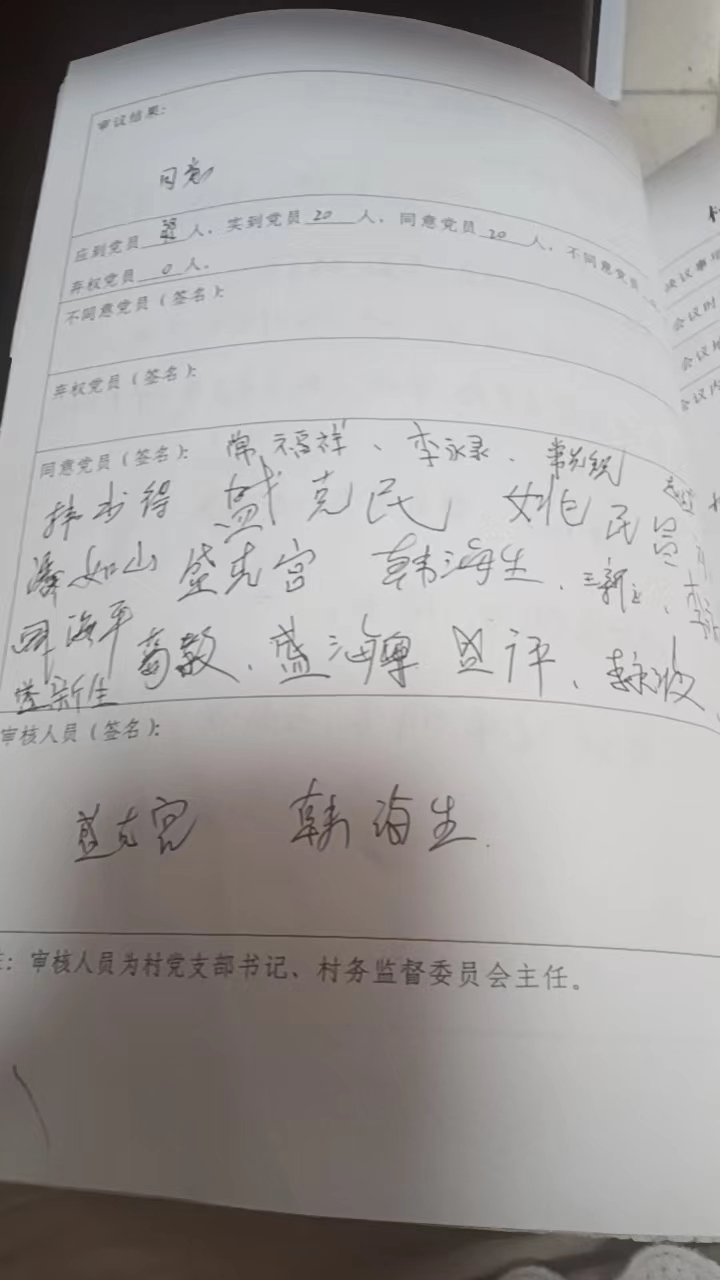 审议结果:
同意
应到党员 人, 实到党员 20 人, 同意党员 20 人, 不同意党员
弃权党员 0 人.
不同意党员(签名):
弃权党员(签名):
同意党员(签名): 常福祥、李永录、
韩书得 盛克民 姚民
潘如山 盛克宫 韩海生、王新
周海平 盛海 、李永波、
盛新生
审核人员(签名):
盛克宫 韩海生.
: 审核人员为村党支部书记、村务监督委员会主任。
决议事
会议时
会议
会议内